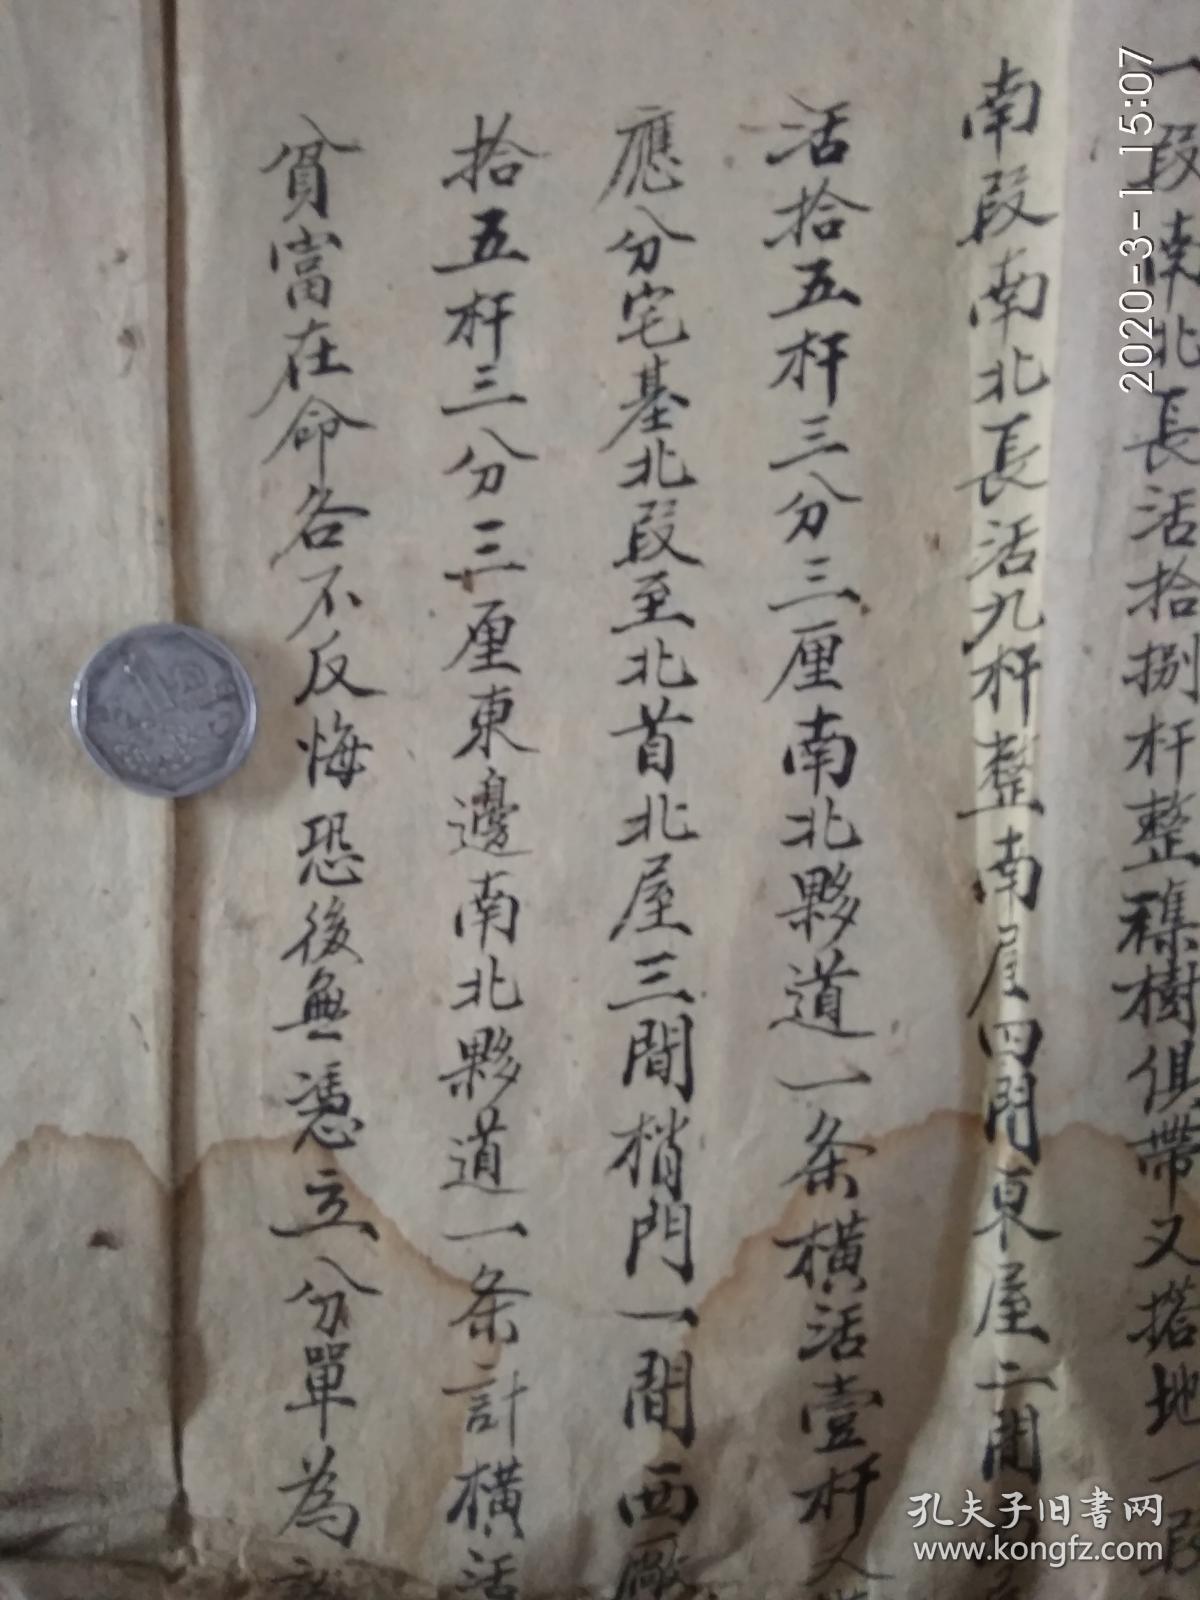 一段南北長活拾捌杆整雜樹俱帶又搭地一段
南段南北長活九杆整南屋四間東屋二間
活拾五杆三分三厘南北夥道一条橫活壹杆又
應分宅基北段至北首北屋三間梢門一間西厰
拾五杆三分三厘東邊南北夥道一条計橫活
貧富在命各不反悔恐後無憑立分單為
2020-3-1 15:07
孔夫子旧书网
www.kongfz.com